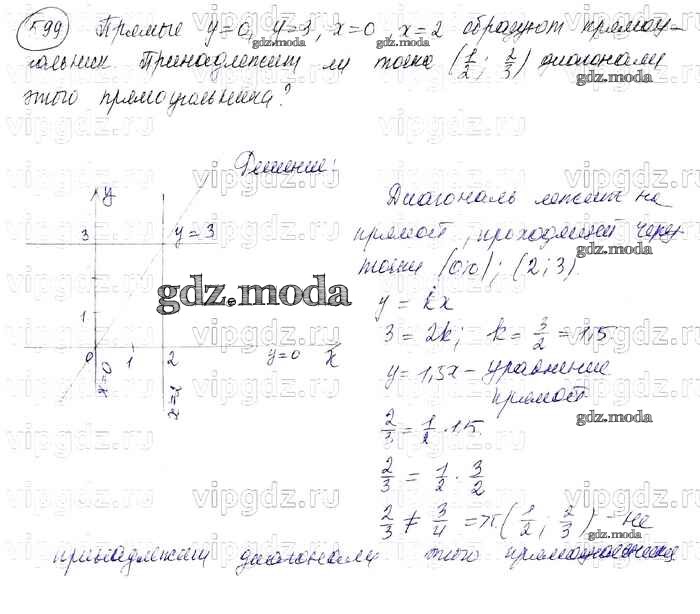 599 Прямые y=0, y=3, x=0, x=2 образуют прямоу-
гольник. Принадлежит ли точка (1/2; 2/3) диагонали
этого прямоугольника?
Решение:
y
3
y=3
1
0
1
2
y=0
x
x=0
x=2
Диагональ лежит на
прямой, проходящей через
точки (0;0); (2;3)
y = kx
3 = 2k; k = 3/2 = 1,5
y = 1,5x - уравнение
прямой
2/3 = 1/2 · 1,5
2/3 = 1/2 · 3/2
2/3 ≠ 3/4 => т(1/2; 2/3) - не
принадлежит диагонали этого прямоугольника
gdz.moda
vipgdz.ru